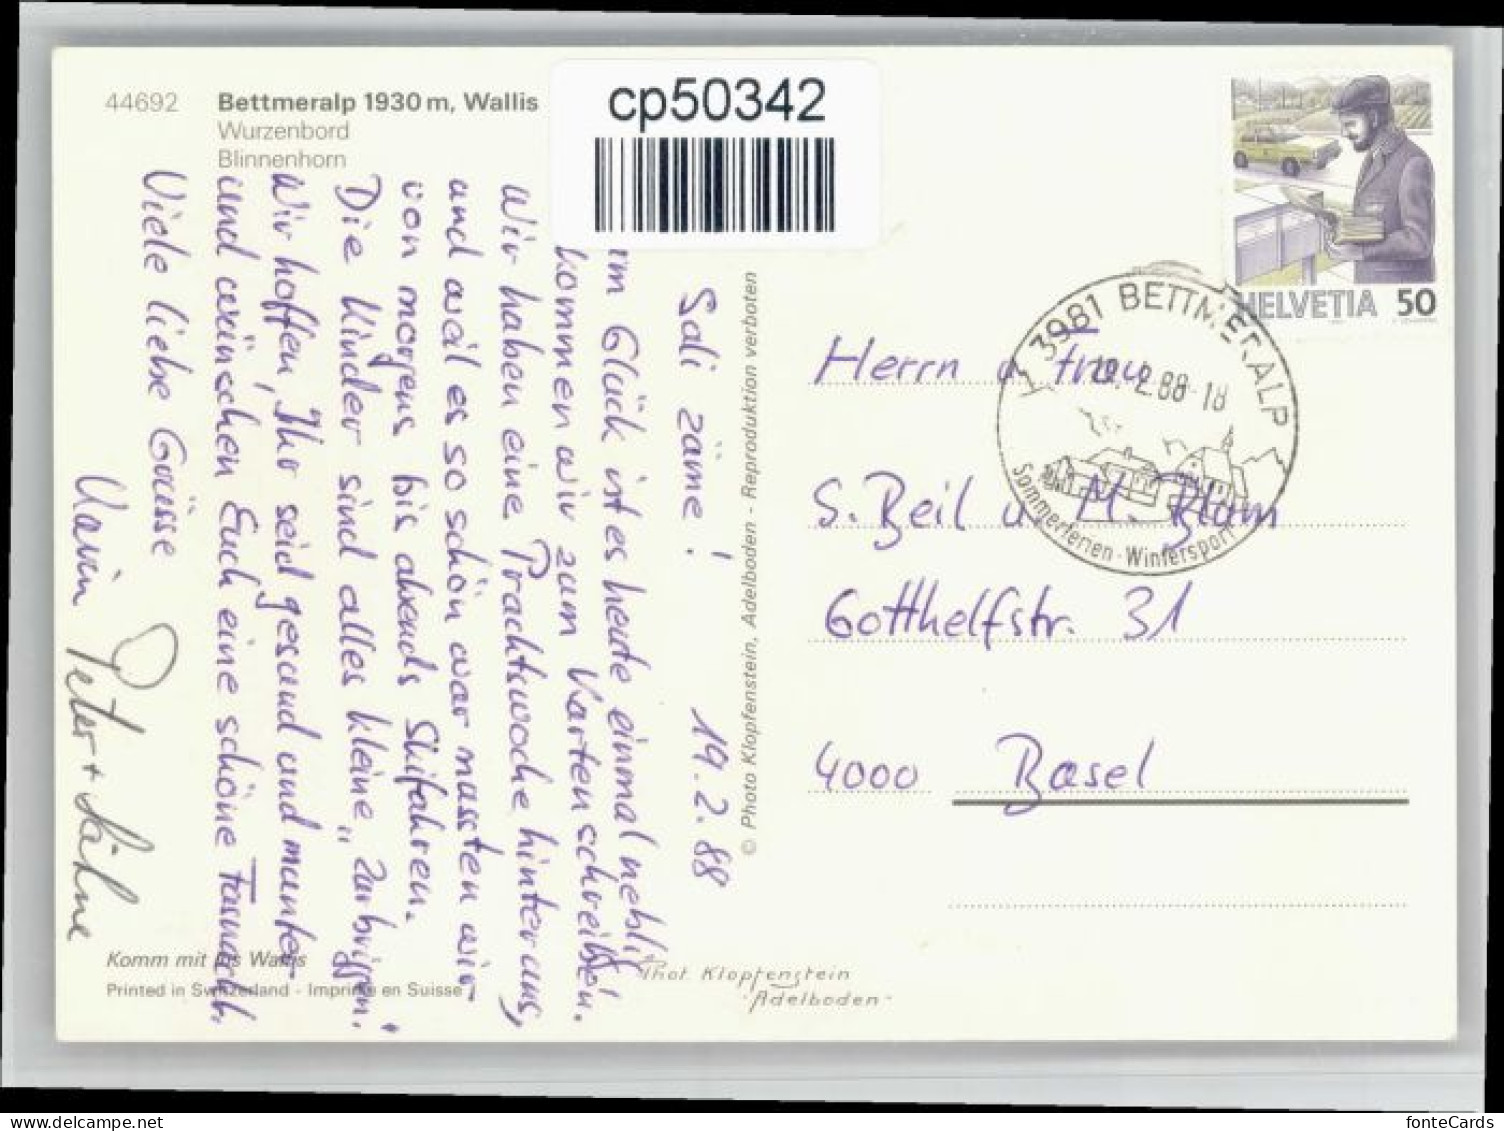 44692 Bettmeralp 1930 m, Wallis
Wurzenbord
Blinnenhorn
cp50342
HELVETIA 50
3981 BETTMERALP
.2.88-18
Sommerferien - Wintersport
Sali zäme! 19.2.88
im Glück ist es heute einmal neblig
kommen wir zum Kartenschreiben.
Wir haben eine Prachtswoche hinter uns,
und weil es so schön war mussten wir
von morgens bis abends Skifahren.
Die Kinder sind alles kleine „Zurbriggen".
Wir hoffen, Ihr seid gesund und munter
und wünschen Euch eine schöne
Viele liebe Grüsse
Karin Peter + Söhne
© Photo Klopfenstein, Adelboden - Reproduktion verboten
Herrn u Frau
S. Beil u M. Blum
Gotthelfstr. 31
4000 Basel
Komm mit ins Wallis
Printed in Switzerland - Imprimé en Suisse
Phot. Klopfenstein
- Adelboden -
fonteCards